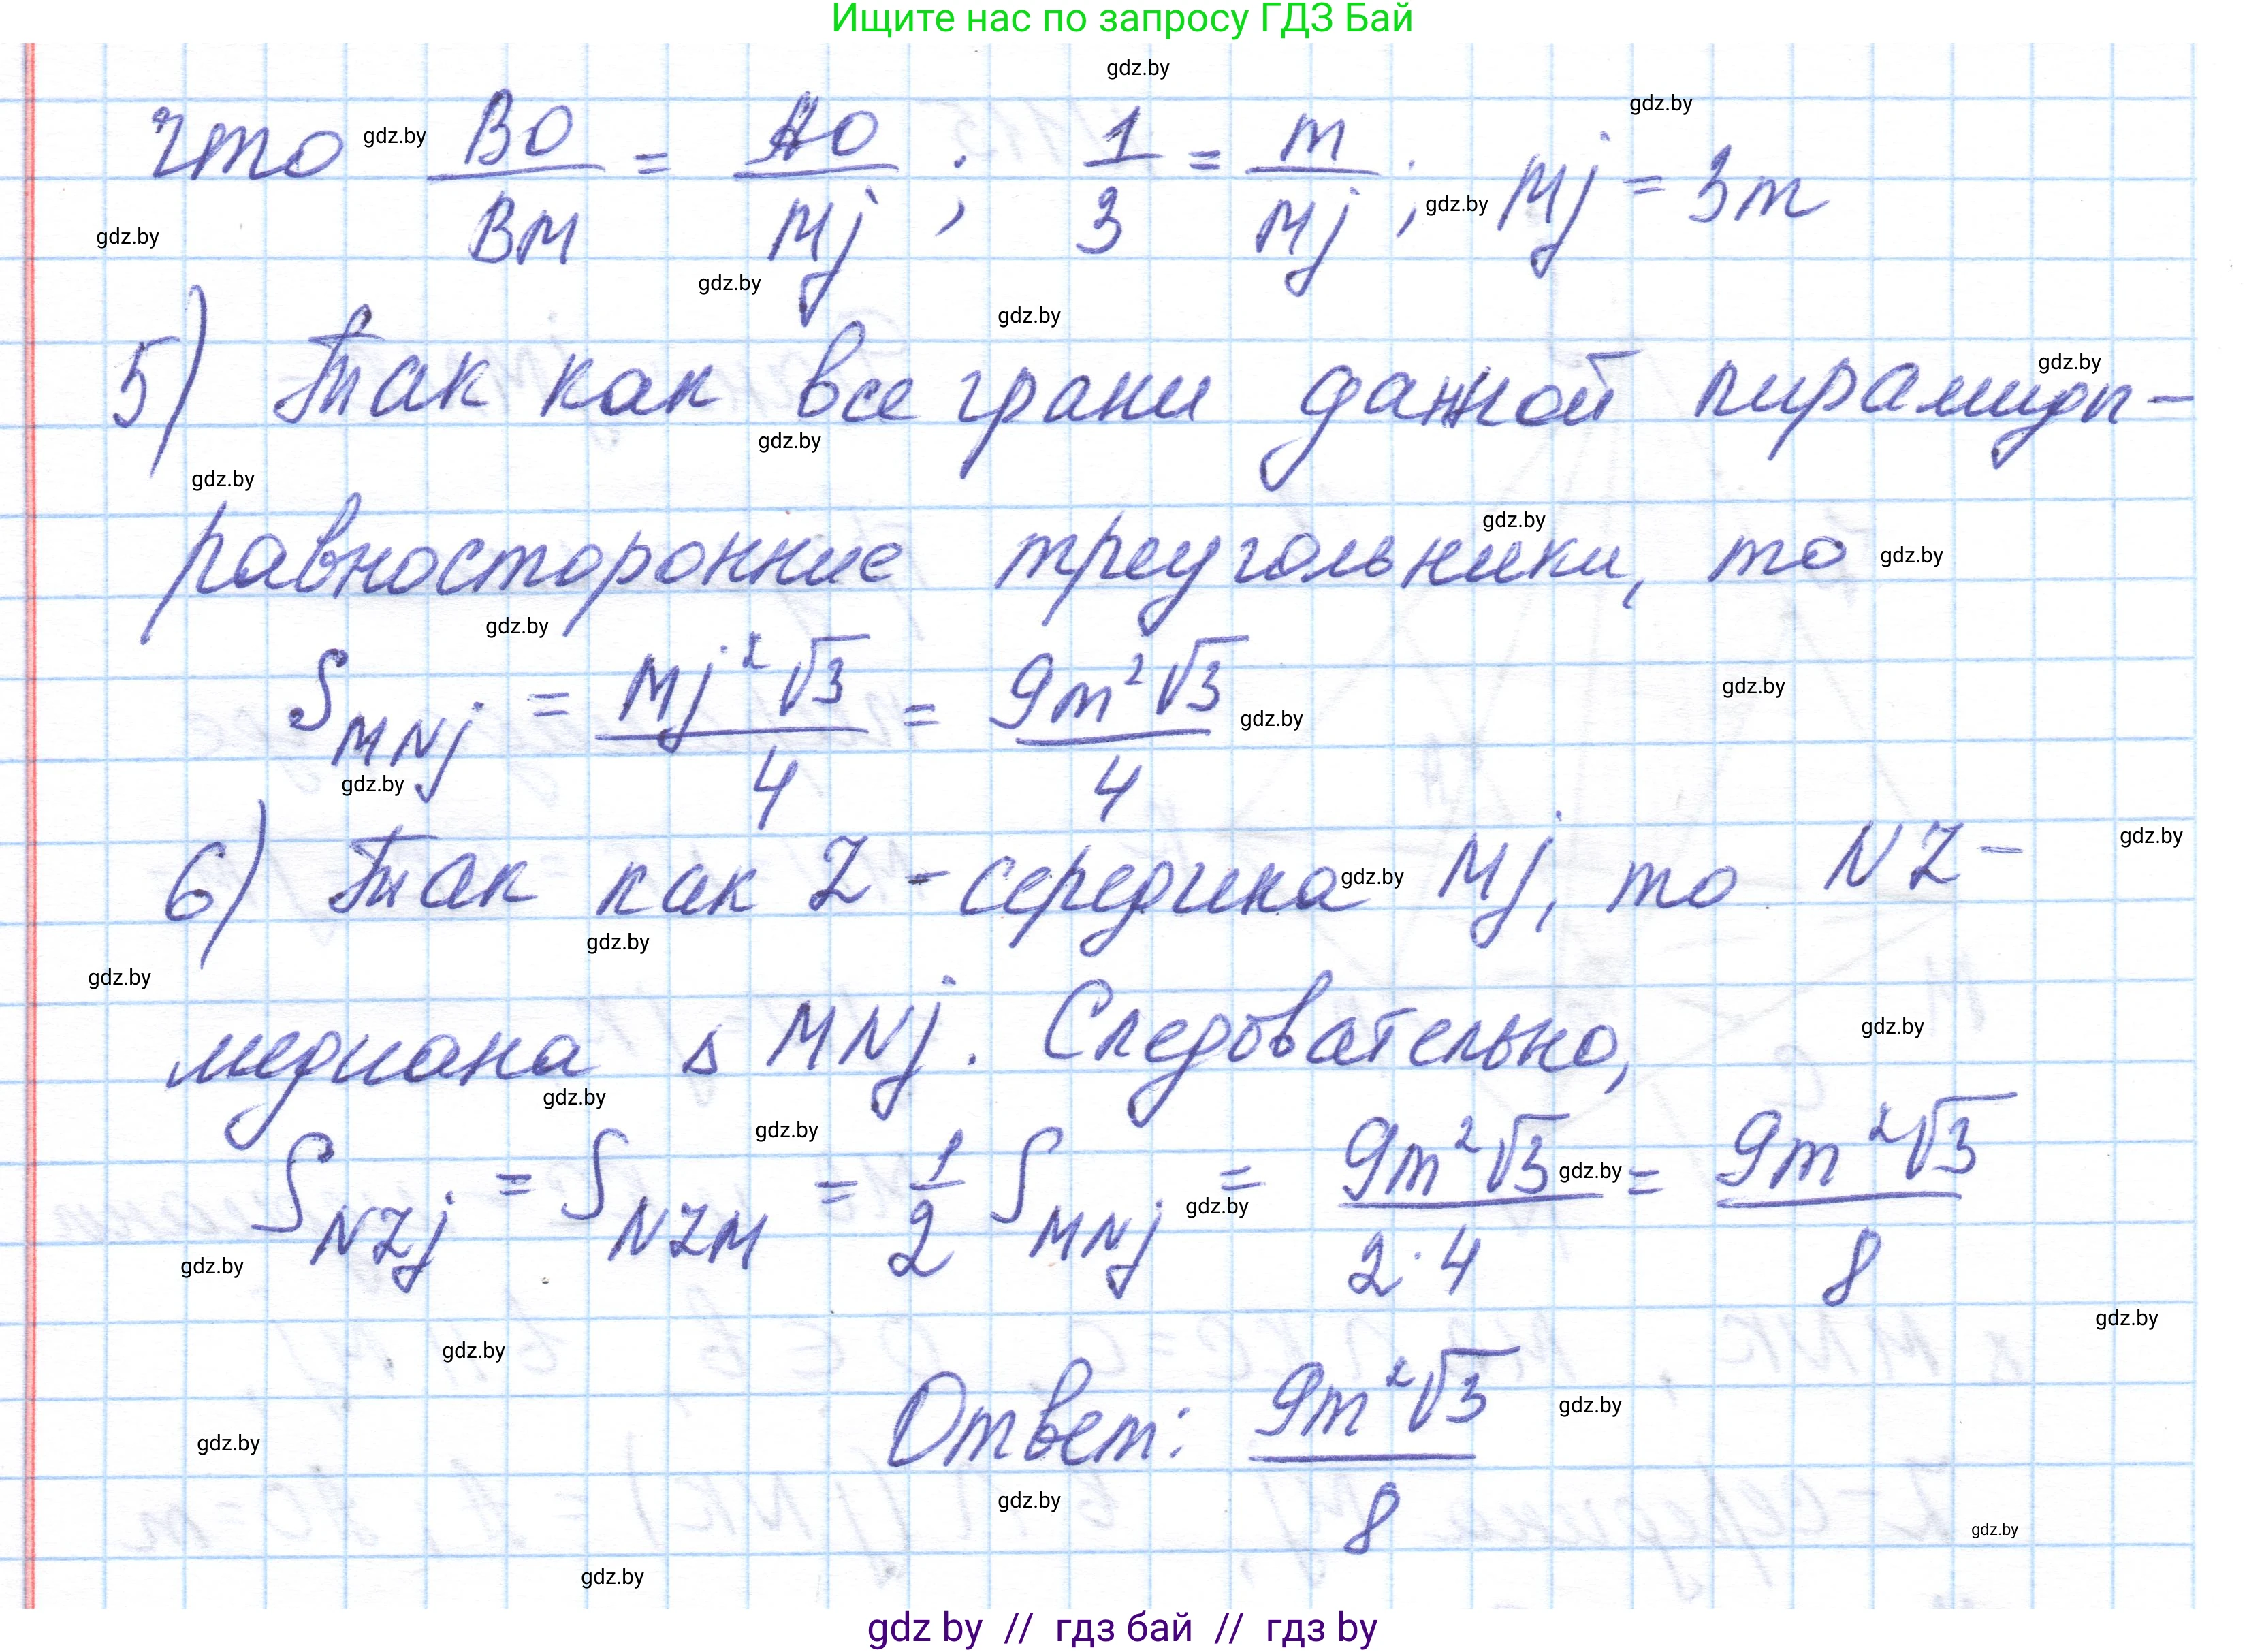 Ищите нас по запросу ГДЗ Бай
что BO/BM = AO/Mj ; 1/3 = m/Mj ; Mj = 3m
5) Так как все грани данной пирамиды –
равносторонние треугольники, то
S_MNj = Mj²√3/4 = 9m²√3/4
6) Так как Z - середина Mj, то NZ –
медиана △ MNj. Следовательно,
S_NZj = S_NZM = 1/2 S_MNj = 9m²√3/2·4 = 9m²√3/8
Ответ: 9m²√3/8
gdz by // гдз бай // гдз by